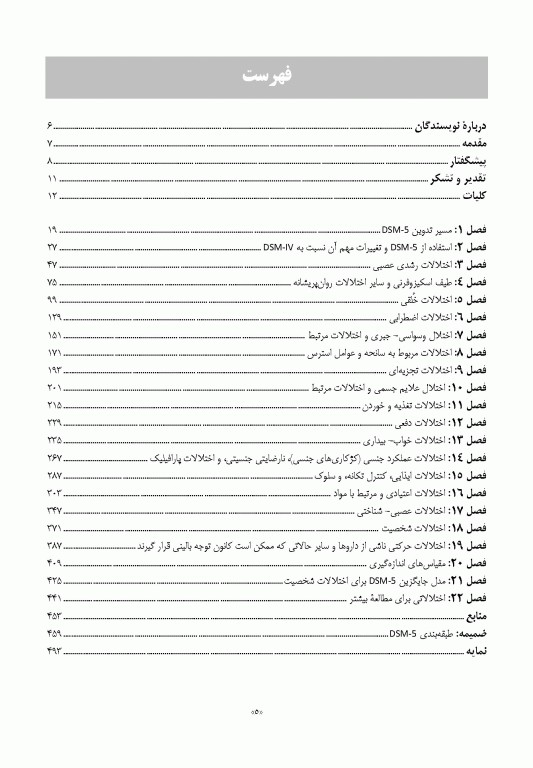 فهرست
دربارهٔ نویسندگان ۶
مقدمه ۷
پیشگفتار ۸
تقدیر و تشکر ۱۱
کلیات ۱۲
فصل ۱: مسیر تدوین DSM-5 ۱۹
فصل ۲: استفاده از DSM-5 و تغییرات مهم آن نسبت به DSM-IV ۲۷
فصل ۳: اختلالات رشدی عصبی ۴۷
فصل ۴: طیف اسکیزوفرنی و سایر اختلالات روان‌پریشانه ۷۵
فصل ۵: اختلالات خُلقی ۹۹
فصل ۶: اختلالات اضطرابی ۱۲۹
فصل ۷: اختلال وسواسی- جبری و اختلالات مرتبط ۱۵۱
فصل ۸: اختلالات مربوط به سانحه و عوامل استرس ۱۷۱
فصل ۹: اختلالات تجزیه‌ای ۱۹۳
فصل ۱۰: اختلال علایم جسمی و اختلالات مرتبط ۲۰۱
فصل ۱۱: اختلالات تغذیه و خوردن ۲۱۵
فصل ۱۲: اختلالات دفعی ۲۲۹
فصل ۱۳: اختلالات خواب- بیداری ۲۳۵
فصل ۱۴: اختلالات عملکرد جنسی (کژکاری‌های جنسی)، نارضایتی جنسیتی، و اختلالات پارافیلیک ۲۶۷
فصل ۱۵: اختلالات ایذایی، کنترل تکانه، و سلوک ۲۸۷
فصل ۱۶: اختلالات اعتیادی و مرتبط با مواد ۳۰۳
فصل ۱۷: اختلالات عصبی- شناختی ۳۴۷
فصل ۱۸: اختلالات شخصیت ۳۷۱
فصل ۱۹: اختلالات حرکتی ناشی از داروها و سایر حالاتی که ممکن است کانون توجه بالینی قرار گیرند ۳۸۷
فصل ۲۰: مقیاس‌های اندازه‌گیری ۴۰۹
فصل ۲۱: مدل جایگزین DSM-5 برای اختلالات شخصیت ۴۲۵
فصل ۲۲: اختلالاتی برای مطالعهٔ بیشتر ۴۴۱
منابع ۴۵۳
ضمیمه: طبقه‌بندی DSM-5 ۴۵۹
نمایه ۴۹۳
«۵»